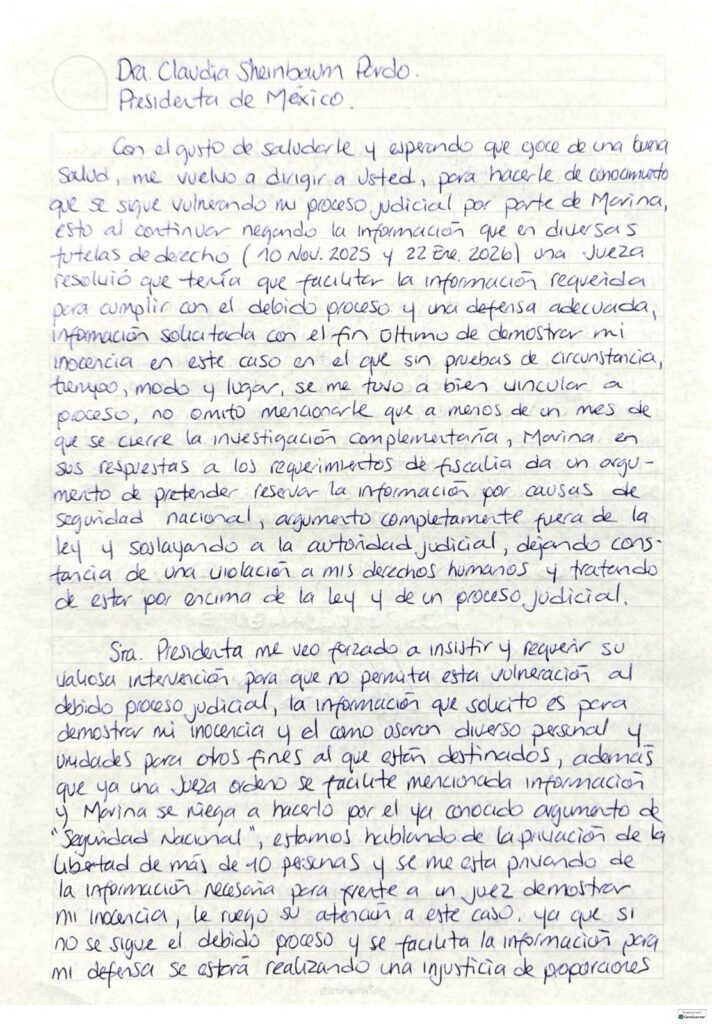 Dra. Claudia Sheinbaum Pardo.
Presidenta de México.
Con el gusto de saludarle y esperando que goce de una buena
salud, me vuelvo a dirigir a Usted, para hacerle de conocimiento
que se sigue vulnerando mi proceso judicial por parte de Marina,
esto al continuar negando la información que en diversas
tutelas de derecho (10 Nov. 2025 y 22 Ene. 2026) una Jueza
resolvió que tenía que facilitar la información requerida
para cumplir con el debido proceso y una defensa adecuada,
información solicitada con el fin último de demostrar mi
inocencia en este caso en el que sin pruebas de circunstancia,
tiempo, modo y lugar, se me tuvo a bien vincular a
proceso, no omito mencionarle que a menos de un mes de
que se cierre la investigación complementaria, Marina en
sus respuestas a los requerimientos de fiscalia da un argu-
mento de pretender reservar la información por causas de
seguridad nacional, argumento completamente fuera de la
ley y soslayando a la autoridad judicial, dejando cons-
tancia de una violación a mis derechos humanos y tratando
de estar por encima de la ley y de un proceso judicial.
Sra. Presidenta me veo forzado a insistir y requerir su
valiosa intervención para que no permita esta vulneración al
debido proceso judicial, la información que solicito es para
demostrar mi inocencia y el como usaron diverso personal y
unidades para otros fines al que están destinados, además
que ya una Jueza ordeno se facilite mencionada información
y Marina se niega a hacerlo por el ya conocido argumento de
"Seguridad Nacional", estamos hablando de la privación de la
libertad de más de 10 personas y se me esta privando de
la información necesaria para frente a un juez demostrar
mi inocencia, le ruego su atención a este caso. ya que si
no se sigue el debido proceso y se facilita la información para
mi defensa se estará realizando una injusticia de proporciones
CamScanner